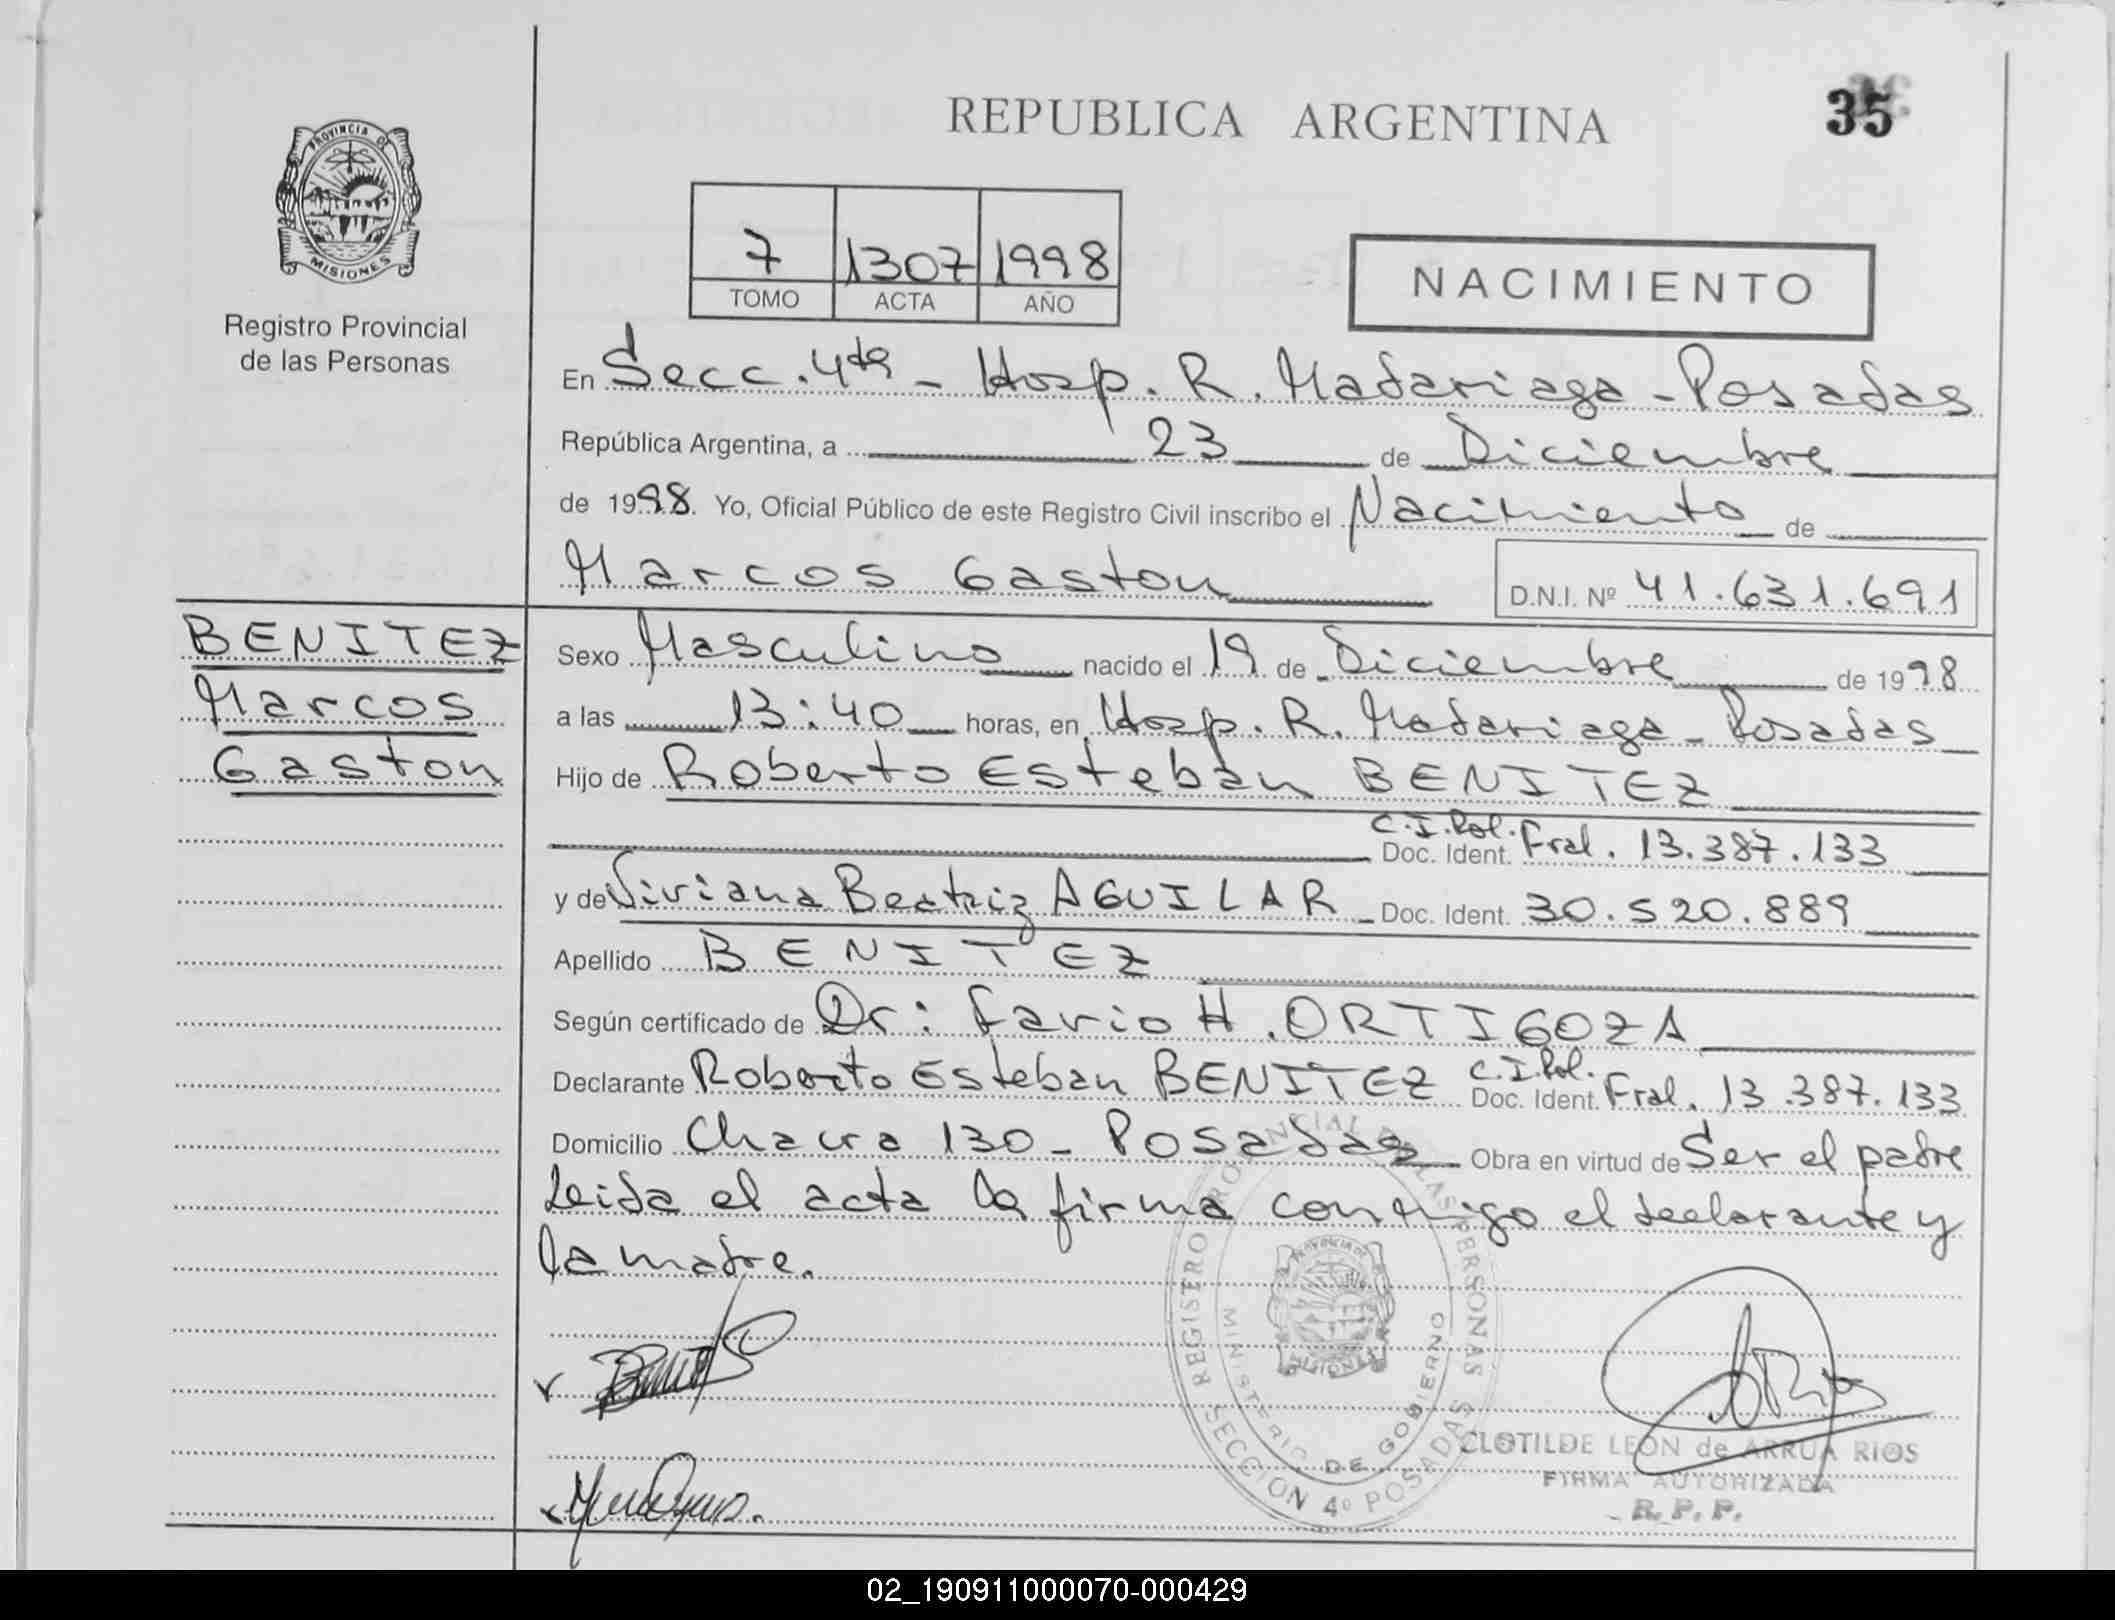 REPUBLICA ARGENTINA
35
PROVINCIA DE
MISIONES
Registro Provincial
de las Personas
7 1307 1998
TOMO ACTA AÑO
NACIMIENTO
En Secc. 4ta - Hosp. R. Madariaga - Posadas
República Argentina, a 23 de Diciembre
de 1998. Yo, Oficial Público de este Registro Civil inscribo el Nacimiento de
Marcos Gaston D.N.I. Nº 41.631.691
BENITEZ
Marcos
Gaston
Sexo Masculino nacido el 19 de Diciembre de 1998
a las 13:40 horas, en Hosp. R. Madariaga - Posadas
Hijo de Roberto Esteban BENITEZ
C.I. Pol.
Doc. Ident. Fral. 13.387.133
y de Viviana Beatriz AGUILAR - Doc. Ident. 30.520.889
Apellido BENITEZ
Según certificado de Dr: Favio H. ORTIGOZA
Declarante Roberto Esteban BENITEZ C.I. Pol. Doc. Ident. Fral. 13.387.133
Domicilio Chacra 130 - Posadas Obra en virtud de Ser el padre
Leida el acta la firma conmigo el declarante y
la madre.
REGISTRO PROVINCIAL DE LAS PERSONAS
MINISTERIO DE GOBIERNO
SECCION 4º POSADAS
CLOTILDE LEON de ARRUA RIOS
FIRMA AUTORIZADA
R.P.P.
02_190911000070-000429